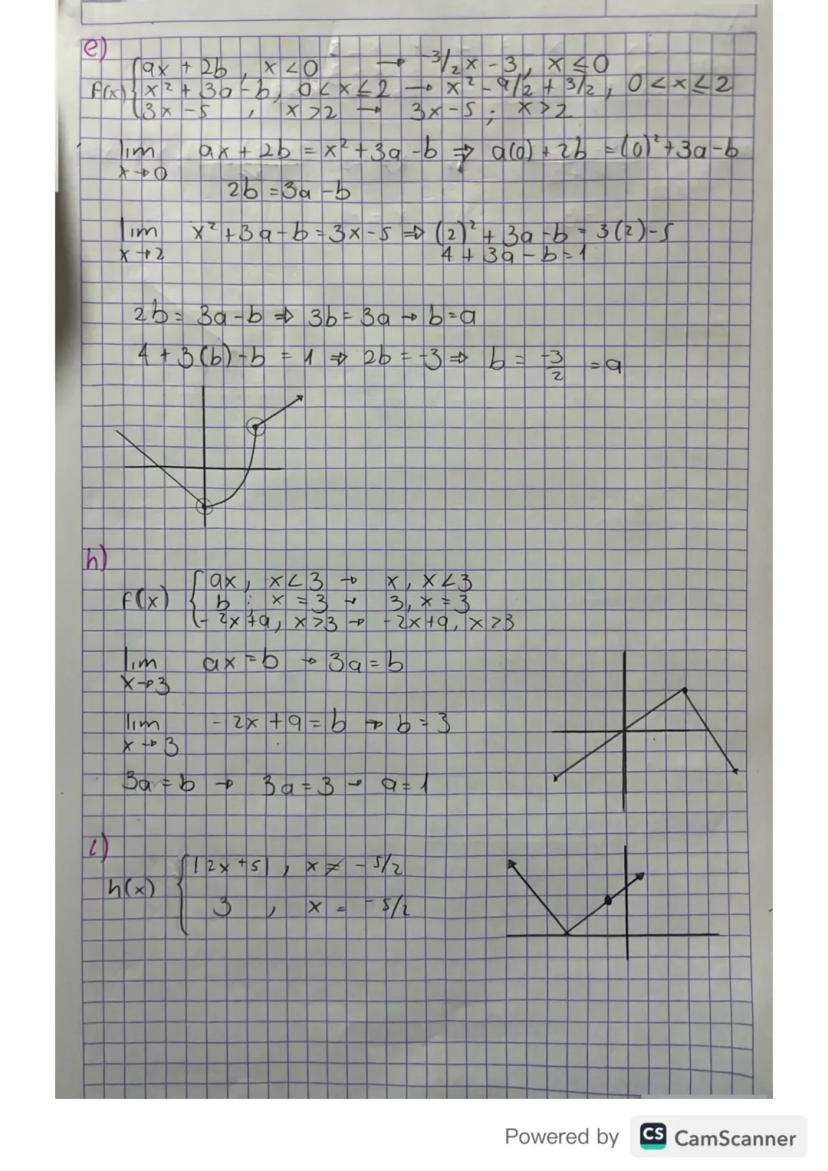 e)
f(x) { ax + 2b, x < 0 → -3/2 x - 3, x ≤ 0
x² + 3b - b, 0 < x ≤ 2 → x² - 9/2 + 3/2, 0 < x ≤ 2
3x - 5, x > 2 → 3x - 5; x > 2
lim x→0 ax + 2b = x² + 3a - b ⇒ a(0) + 2b = (0)² + 3a - b
2b = 3a - b
lim x→2 x² + 3a - b = 3x - 5 ⇒ (2)² + 3a - b = 3(2) - 5
4 + 3a - b = 1
2b = 3a - b ⇒ 3b = 3a → b = a
4 + 3(b) - b = 1 ⇒ 2b = -3 ⇒ b = -3/2 = a
h)
f(x) { ax, x < 3 → x, x < 3
b; x = 3 → 3, x = 3
- 2x + 9, x > 3 → -2x + 9, x > 3
lim x→3 ax = b → 3a = b
lim x→3 - 2x + 9 = b → b = 3
3a = b → 3a = 3 → a = 1
i)
h(x) { |2x + 5|, x ≠ - 5/2
3, x = - 5/2
Powered by CS CamScanner